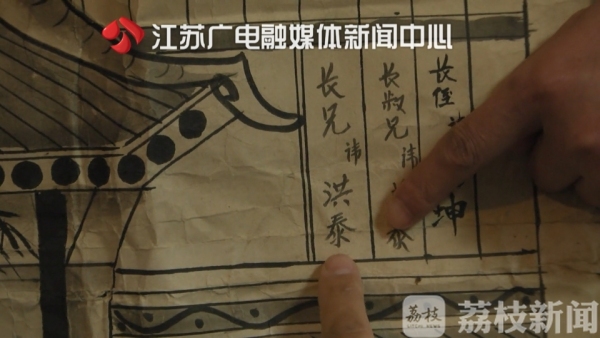 江苏广电融媒体新闻中心
长侄
坤
长叔兄讳
泰
长兄讳洪泰
荔枝
荔枝新闻